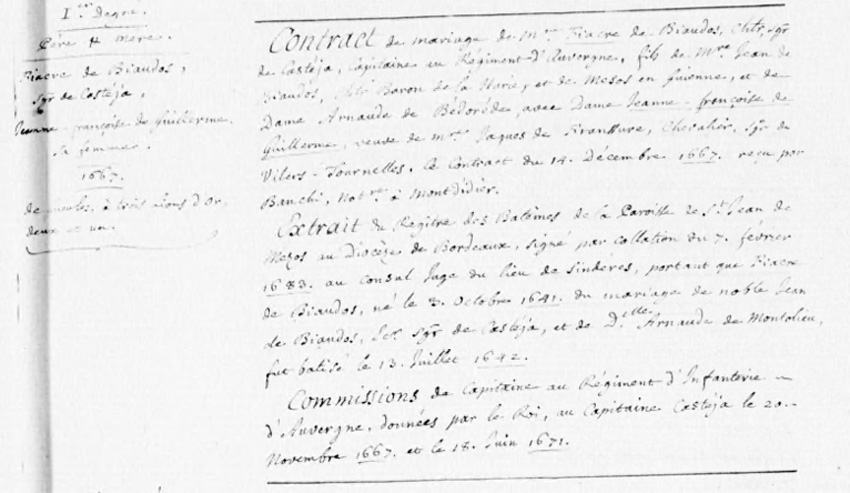 I.er Degré.
Père & Mère.
Fiacre de Biaudos,
Sgr de Casteja,
Jeanne-françoise de Guillerme,
sa femme.
1667.
de gueules, à trois lions d'Or,
deux et un.
Contract de mariage de M.re Fiacre de Biaudos, Ch.lr, Sgr
de Castéja, Capitaine au Régiment d'Auvergne, fils de M.re Jean de
Biaudos, Ch.lr Baron de la Harie, et de Mezos en Guienne, et de
Dame Arnaude de Bédoréde, avec Dame Jeanne-françoise de
Guillerme, veuve de M.re Jaques de Franssure, Chevalier, Sgr de
Vilers-Tournelles, le Contract du 14. Décembre 1667. reçu par
Banchi, Not.re à Montdidier.
Extrait du Regitre des Batêmes de la Paroisse de S.t Jean de
Mezos au Diocèze de Bordeaux, signé par collation du 7. février
1683. au Consul Juge du lieu de Sindères, portant que Fiacre
de Biaudos, né le 3. Octobre 1641. du mariage de noble Jean
de Biaudos, Sgr de Casteja, et de D.elle Arnaude de Montolieu,
fut batisé le 13. Juillet 1642.
Commissions de Capitaine au Régiment d'Infanterie
d'Auvergne, données par le Roi, au Capitaine Castéja le 20.
Novembre 1667. et le 18. Juin 1671.